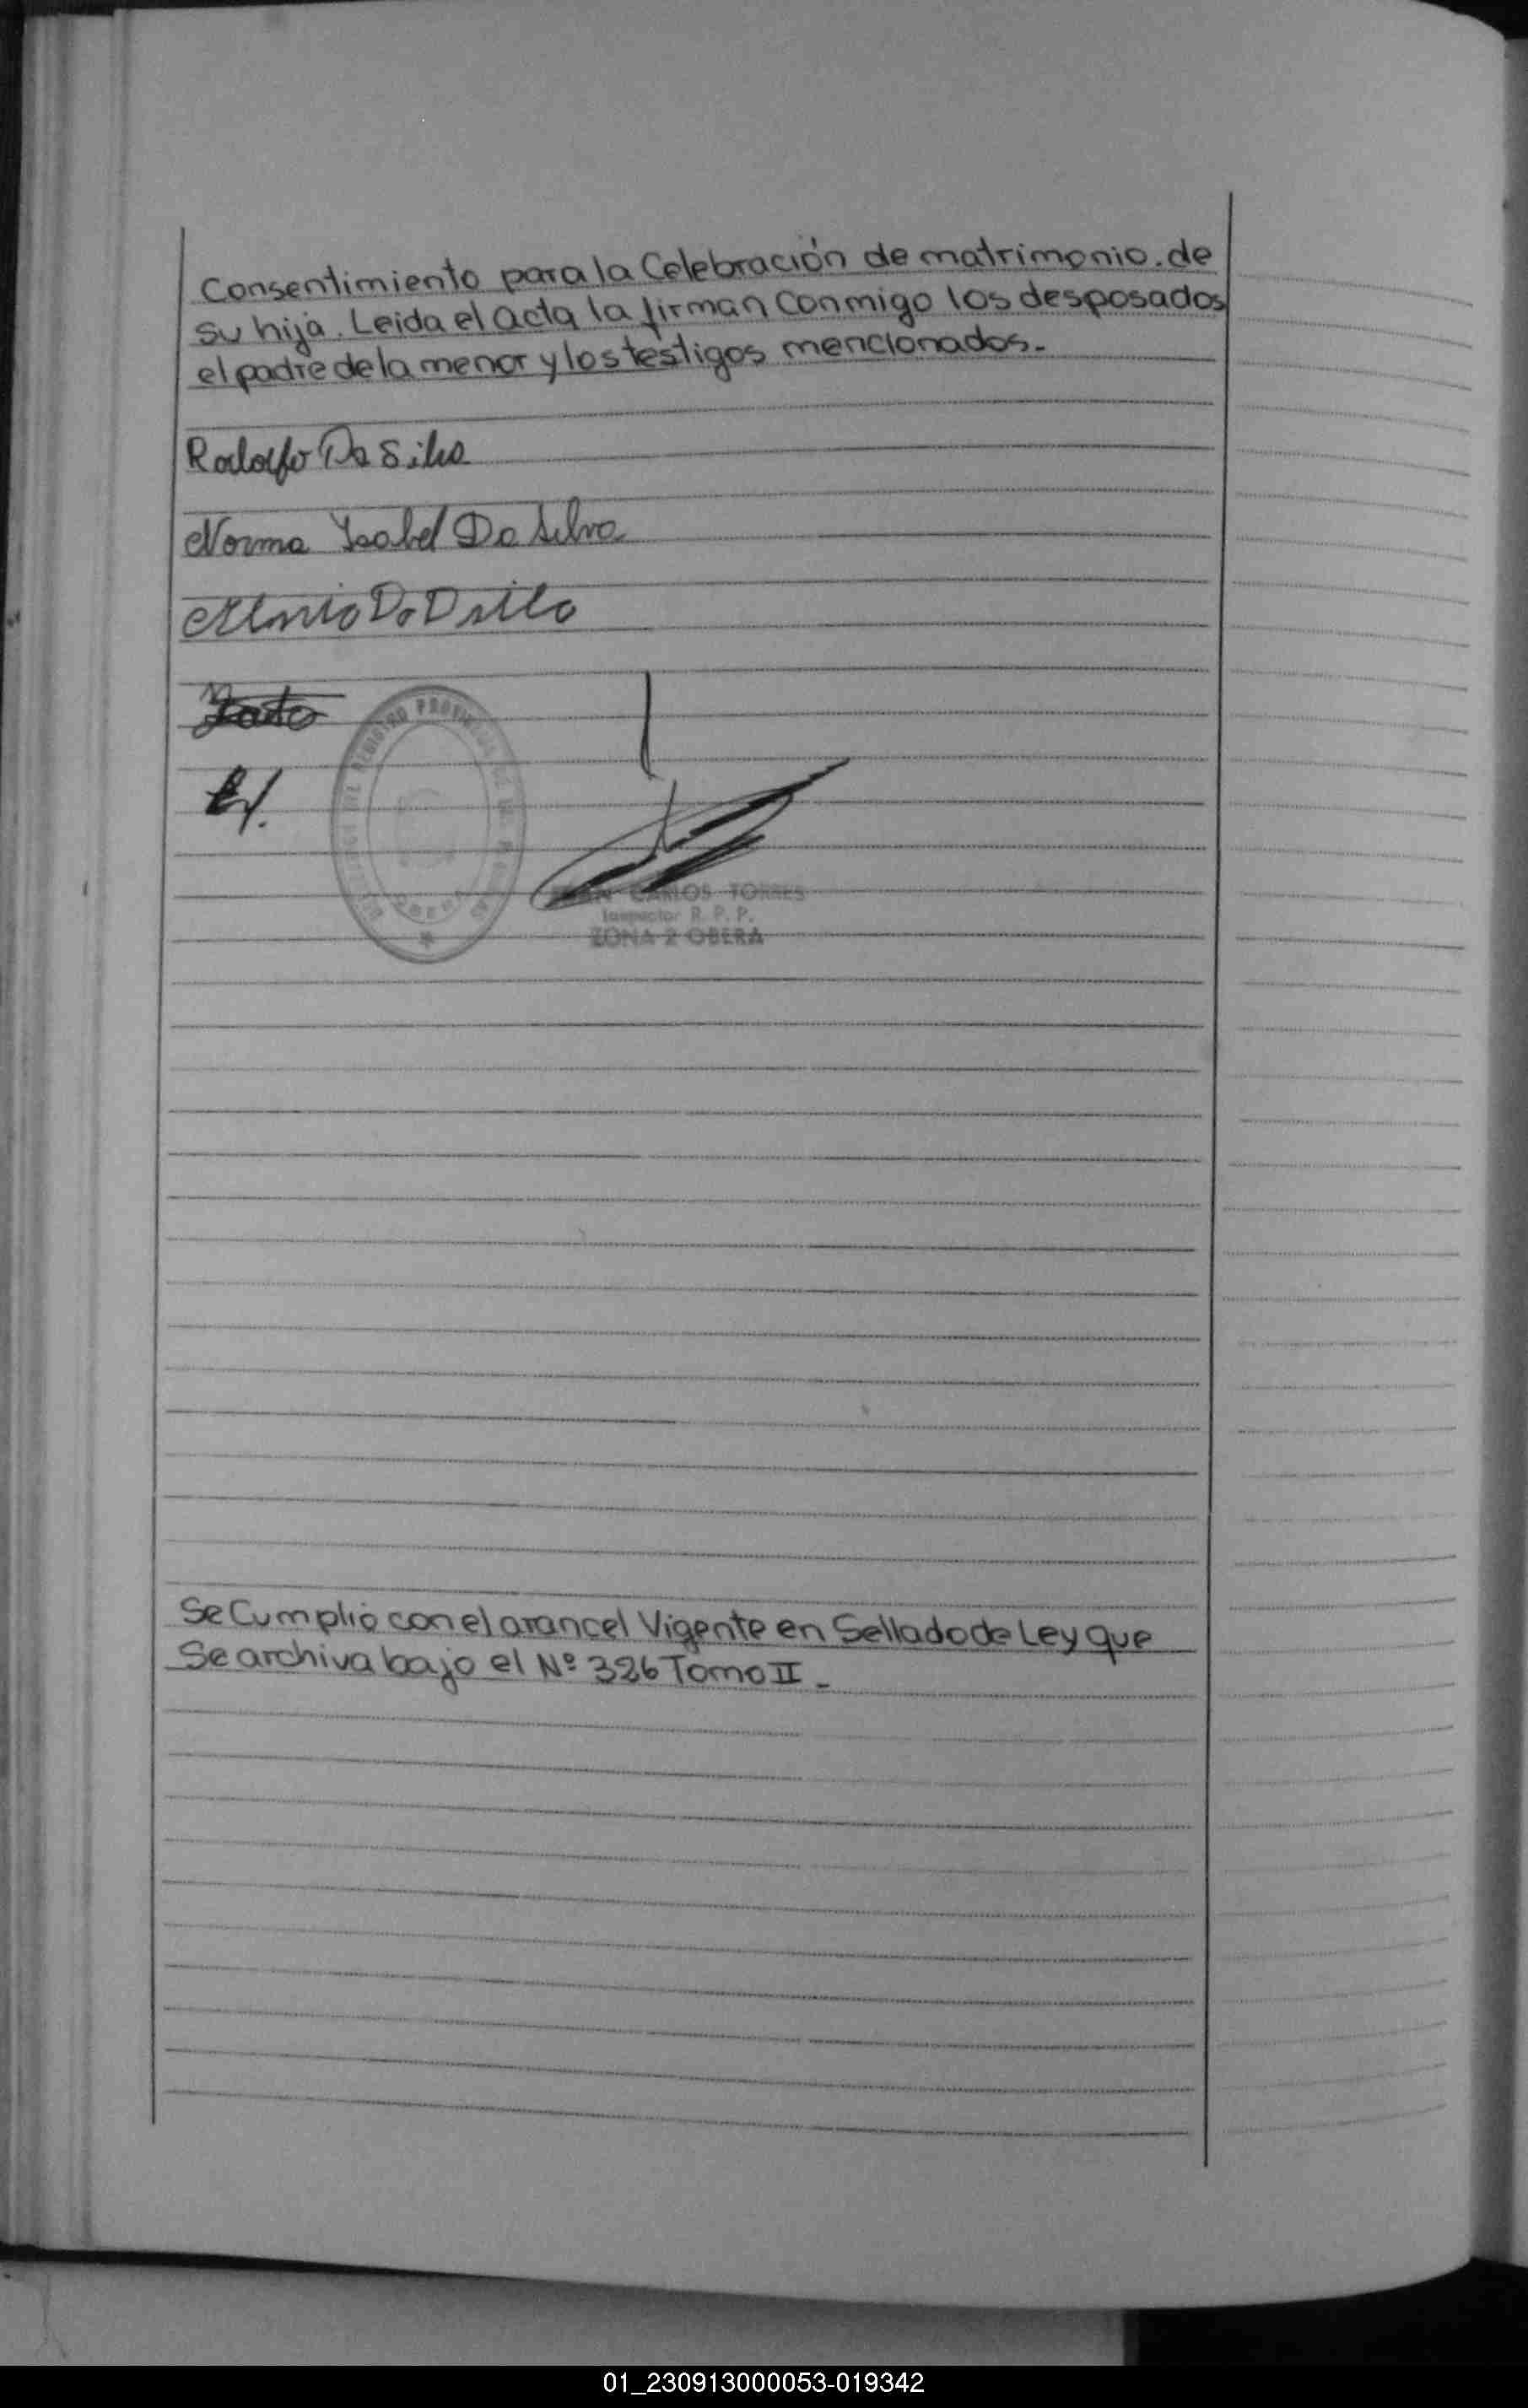 Consentimiento para la Celebración de matrimonio. de
su hija. Leida el acta la firman conmigo los desposados
el padre de la menor y los testigos mencionados.-
Rodolfo Da Silva
Norma Isabel Da Silva
CARLOS TORRES
Inspector R. P. P.
ZONA 2 OBERA
Se Cumplió con el arancel Vigente en Sellado de Ley que
Se archiva bajo el Nº 326 Tomo II -
01_230913000053-019342